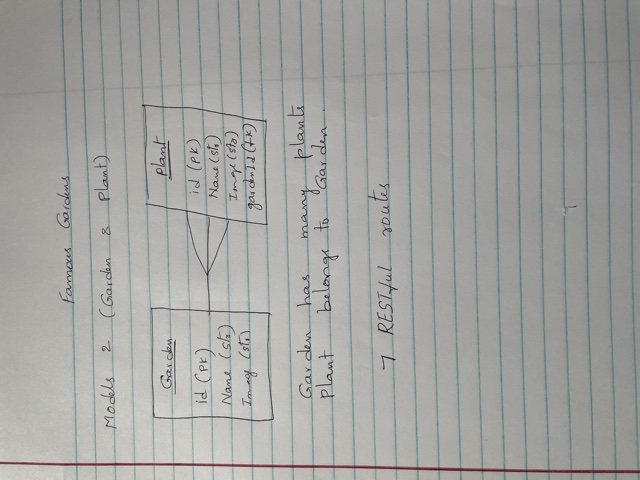 Famous Gardens
Models 2 (Garden & Plant)
Garden
id (PK)
Name (str)
Image (str)
Plant
id (PK)
Name (str)
Image (str)
gardenId (fk)
Garden has many plants
Plant belongs to Garden.
7 RESTful routes